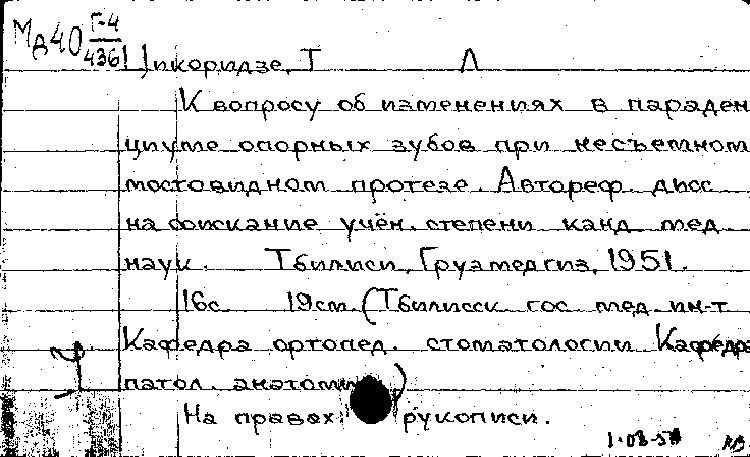 Мд40 Г-4
4361 Цикоридзе, Т Л
К вопросу об изменениях в параден
циуме опорных зубов при несъемном
мостовидном протезе. Автореф. дисс
на соискание учён. степени канд мед
наук. Тбилиси, Грузмедгиз, 1951.
16с 19см. (Тбилисск гос мед ин-т
Кафедра ортопед. стоматологии Кафедра
патол. анатомии)
На правах рукописи.